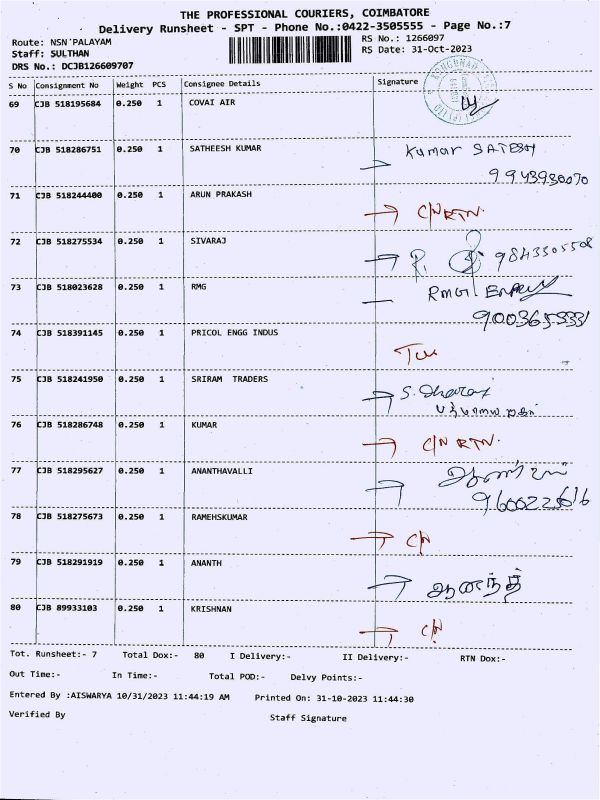 THE PROFESSIONAL COURIERS, COIMBATORE
Delivery Runsheet - SPT - Phone No.:0422-3505555 - Page No.:7
Route: NSN PALAYAM
RS No.: 1266097
Staff: SULTHAN
RS Date: 31-Oct-2023
DRS No.: DCJB126609707
S No Consignment No Weight PCS Consignee Details Signature
69 CJB 518195684 0.250 1 COVAI AIR
70 CJB 518286751 0.250 1 SATHEESH KUMAR Kumar SATESH
9943930070
71 CJB 518244400 0.250 1 ARUN PRAKASH C/N RTN.
72 CJB 518275534 0.250 1 SIVARAJ R. 9843305508
73 CJB 518023628 0.250 1 RMG RMG
74 CJB 518391145 0.250 1 PRICOL ENGG INDUS
75 CJB 518241950 0.250 1 SRIRAM TRADERS S.
76 CJB 518286748 0.250 1 KUMAR C/N RTN.
77 CJB 518295627 0.250 1 ANANTHAVALLI
78 CJB 518275673 0.250 1 RAMEHSKUMAR C/N
79 CJB 518291919 0.250 1 ANANTH ஆனந்த்
80 CJB 89933103 0.250 1 KRISHNAN C/N
Tot. Runsheet:- 7 Total Dox:- 80 I Delivery:- II Delivery:- RTN Dox:-
Out Time:- In Time:- Total POD:- Delvy Points:-
Entered By :AISWARYA 10/31/2023 11:44:19 AM Printed On: 31-10-2023 11:44:30
Verified By Staff Signature